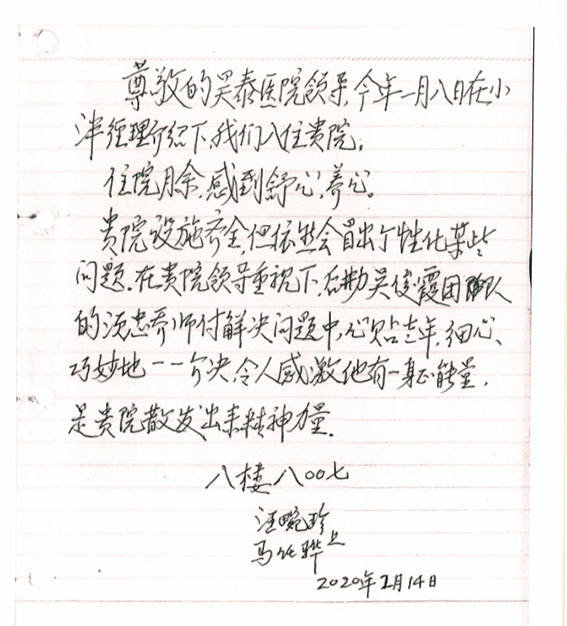 尊敬的昊泰医院领导,今年一月八日在小
津经理介绍下,我们入住贵院,
住院月余,感到舒心,养心。
贵院设施齐全,但依然会冒出个性化某些
问题,在贵院领导重视下,后勤吴俊霞团队
的须忠乔师付解决问题中,心贴老年,细心、
巧妙地一一介决,令人感激他有一身正能量,
是贵院散发出来精神力量.
八楼八00七
汪婉珍
马 骅上
2020年2月14日